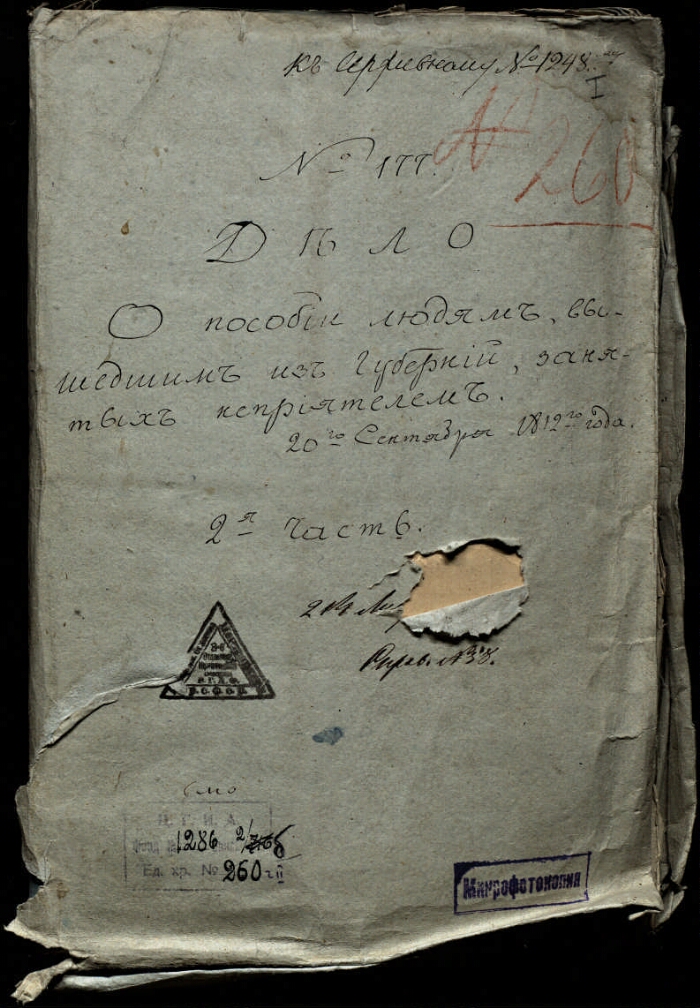 къ Архивному № 1248
I
№ 177.
№ 260
ДѢЛО
О пособіи людямъ, вы-
шедшимъ изъ Губерній, заня-
тыхъ непріятелемъ.
20го Сентября 1812го года.
2я часть.
Р.С.Ф.С.Р.
Ц. Г. И. А.
Фонд № 1286 2/
Ед. хр. № 260 ч II
Микрофотокопия